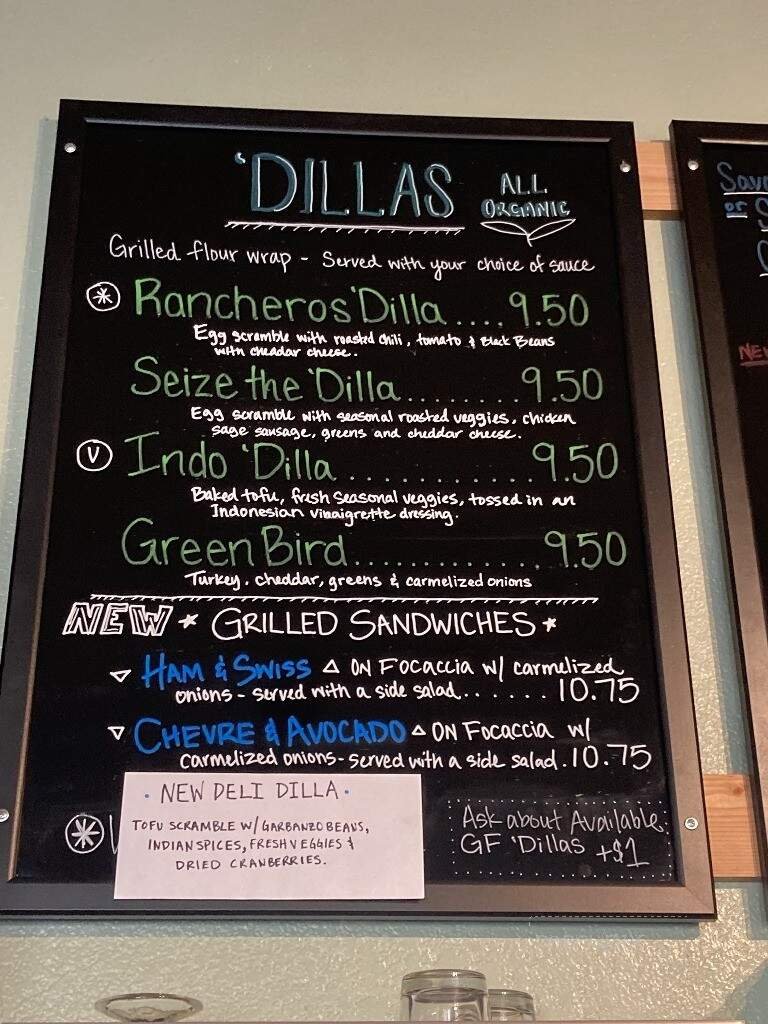 'DILLAS
ALL
ORGANIC
Grilled flour wrap - Served with your choice of sauce
* Rancheros 'Dilla ....9.50
Egg scramble with roasted chili, tomato & Black Beans
with cheddar cheese.
Seize the 'Dilla........9.50
Egg scramble with seasonal roasted veggies, chicken
sage sausage, greens and cheddar cheese.
V Indo 'Dilla ............9.50
Baked tofu, fresh seasonal veggies, tossed in an
Indonesian vinaigrette dressing.
Green Bird............9.50
Turkey, cheddar, greens & carmelized onions
NEW * GRILLED SANDWICHES *
▽ HAM & SWISS △ ON FOCACCIA W/ carmelized
onions - served with a side salad......10.75
▽ CHEVRE & AVOCADO △ ON FOCACCIA W/
carmelized onions - served with a side salad.10.75
· NEW DELI DILLA ·
TOFU SCRAMBLE W/ GARBANZO BEANS,
INDIAN SPICES, FRESH VEGGIES &
DRIED CRANBERRIES.
*
Ask about Available
GF 'Dillas +$1
or
NEW